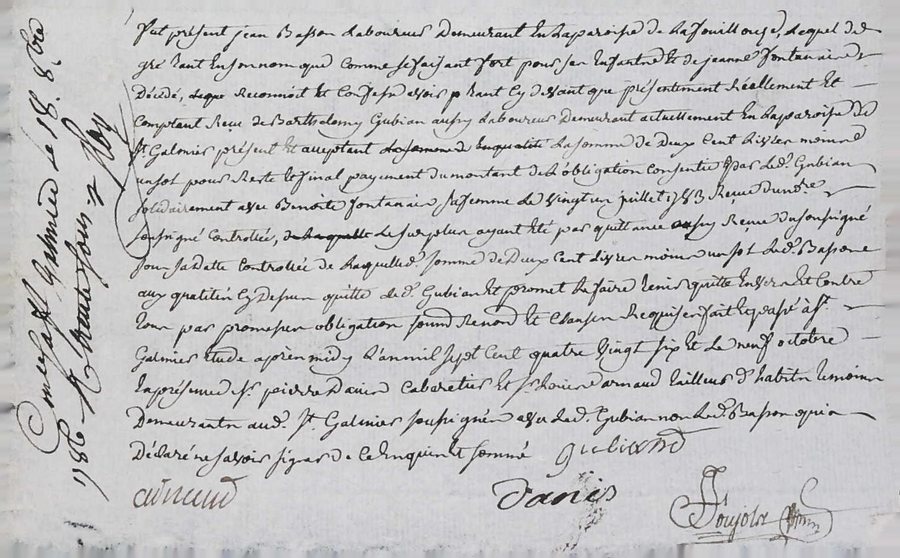 fut présent jean Basson Laboureur Demeurant En la paroise de La fouillouse, Lequel de
gré tant En son nom que comme se faisant fort pour ses Enfants Et de jeanne fontanaire
Décédé, Reconnoit Et Confesse avoir p tant Cy devant que présentement Réellement Et
comptant Reçu de Barthelemy Gubian aussy Laboureur Demeurant actuellement En La paroise de
St. Galmier présent Et acceptant La somme de Deux Cent Livres moins
un sol pour Reste Et final payement du montant de L'obligation Consentie par Led. Gubian
solidairement avec Benoite fontanaire, sa femme Le vingt un juillet 1783 Reçue du notre
soussigné Controllée, Le surplus ayant été par quittance Reçue du soussigné
sous sa datte Controllée de Laquelle somme de Deux Cent Livres moins un sol Led. Basson
aux qualités Cy dessus quitte Led. Gubian Et promet Le faire tenir quitte Envers Et Contre
tous par promesses obligation Et Clauses Requises fait Et passé à St.
Galmier étude après midy L'an mil sept Cent quatre vingt six Et Le neuf octobre
En présence de Sr. pierre Danis Cabaretier Et Sr. arnaud tailleur d'habits témoins
Demeurants aud. St. Galmier soussignés avec Led. Gubian non Led. Basson qui a
Déclaré ne savoir signer de Ce Enquis Et sommé
gubiand
arnaud
Danis
Controllé à St. Galmier Le 18. 8bre
1786 Reçu trente sous